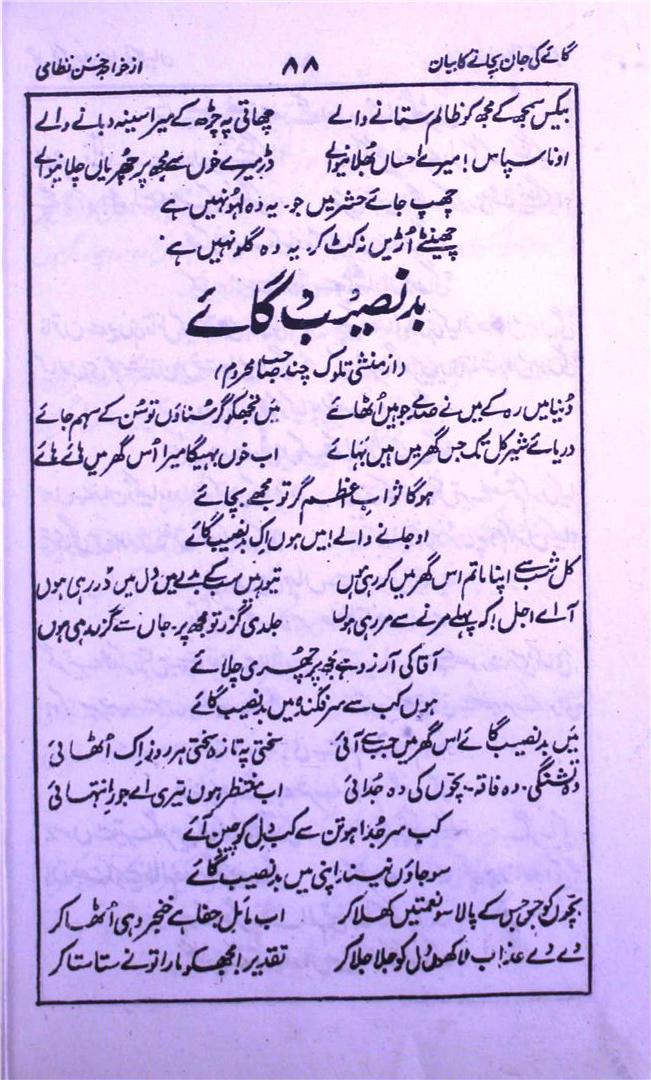 گائے کی جان بچانے کا بیان ۸۸ از خواجہ حسن نظامی
بیکس سمجھ کے مجھ کو ظالم ستانے والے چھاتی پہ چڑھ کے میرا سینہ دبانے والے
او ناسپاس! میرے احساں بھلانیوالے ڈر میرے خوں سے مجھ پر چھریاں چلانیوالے
چھپ جائے حشر میں جو۔ یہ وہ لہو نہیں ہے
چھینٹے اڑیں نہ کٹ کر۔ یہ وہ گلو نہیں ہے
بدنصیب گائے
(از منشی تلوک چند صاحب محروم)
دنیا میں رہ کے میں نے صدمے جو ہیں اٹھائے میں تجھکو گر سناؤں تو سن کے سہم جائے
دریائے شیر کل تک جس گھر میں ہیں بہائے اب خوں بہیگا میرا اس گھر میں ہائے ہائے
ہوگا ثواب اعظم گر تو مجھے بچائے
او جانے والے! میں ہوں اک بدنصیب گائے
کل شب سے اپنا ماتم اس گھر میں کر رہی ہوں تیور میں سب کے بدلے میں دل میں ڈر رہی ہوں
آ اے اجل! کہ پہلے مرنے سے مر رہی ہوں جلدی گزر تو مجھ پر۔ جاں سے گزر رہی ہوں
آقا کی آرزو ہے مجھ پر چھری چلائے
ہوں کب سے سرفگندہ میں بدنصیب گائے
میں بدنصیب گائے اس گھر میں جب سے آئی سختی پہ تازہ سختی ہر روز اک اٹھائی
وہ تشنگی۔ وہ فاقہ۔ بچوں کی وہ جدائی اب منتظر ہوں تیری اے جور انتہائی
کب سر جدا ہو تن سے کب دل کو چین آئے
سو جاؤں نیند اپنی میں بدنصیب گائے
بچوں کو جس جس کے پالا سو نعمتیں کھلا کر اب مائل جفا ہے خنجر وہی اٹھا کر
دے دے عذاب لاکھوں دل کو جلا جلا کر تقدیر! مجھکو مارا تو نے ستا ستا کر